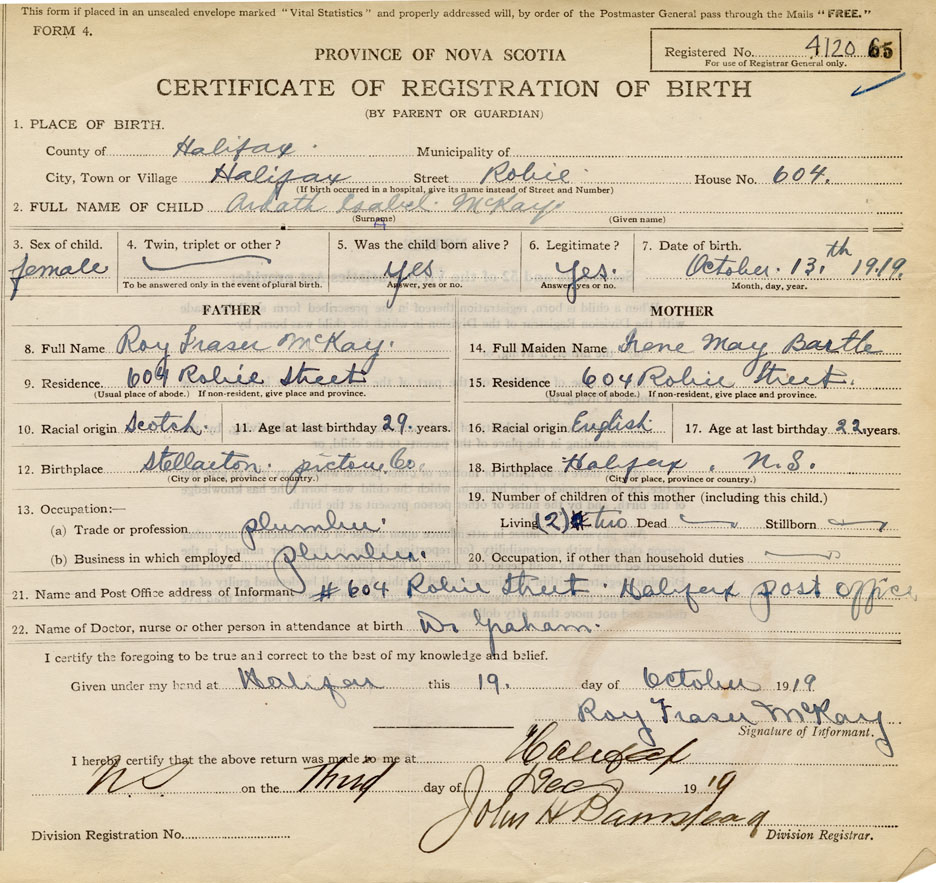 This form if placed in an unsealed envelope marked "Vital Statistics" and properly addressed will, by order of the Postmaster General pass through the Mails "FREE."
FORM 4.
PROVINCE OF NOVA SCOTIA
Registered No. 4120 65
For use of Registrar General only.
CERTIFICATE OF REGISTRATION OF BIRTH
(BY PARENT OR GUARDIAN)
1. PLACE OF BIRTH.
County of Halifax. Municipality of
City, Town or Village Halifax Street Robie House No. 604.
(If birth occurred in a hospital, give its name instead of Street and Number)
2. FULL NAME OF CHILD Ardath Isabel McKay
(Surname) (Given name)
3. Sex of child. female
4. Twin, triplet or other?
To be answered only in the event of plural birth.
5. Was the child born alive? yes
Answer, yes or no.
6. Legitimate? Yes.
Answer, yes or no.
7. Date of birth. October. 13.th 1919.
Month, day, year.
FATHER
8. Full Name Roy Fraser McKay.
9. Residence. 604 Robie Street
(Usual place of abode.) If non-resident, give place and province.
10. Racial origin Scotch. 11. Age at last birthday 29. years.
12. Birthplace Stellarton. pictou Co.
(City or place, province or country.)
13. Occupation:—
(a) Trade or profession plumber.
(b) Business in which employed Plumber.
MOTHER
14. Full Maiden Name Irene May Bartle
15. Residence 604 Robie Street.
(Usual place of abode.) If non-resident, give place and province.
16. Racial origin English 17. Age at last birthday 22 years.
18. Birthplace Halifax, N.S.
(City or place, province or country.)
19. Number of children of this mother (including this child.)
Living (2) two Dead Stillborn
20. Occupation, if other than household duties
21. Name and Post Office address of Informant # 604 Robie Street. Halifax post office
22. Name of Doctor, nurse or other person in attendance at birth Dr Graham.
I certify the foregoing to be true and correct to the best of my knowledge and belief.
Given under my hand at Halifax this 19. day of October 1919
Roy Fraser McKay
Signature of Informant.
I hereby certify that the above return was made to me at Halifax
N.S. on the Third day of Dec 1919
John H Barnstead
Division Registration No. Division Registrar.